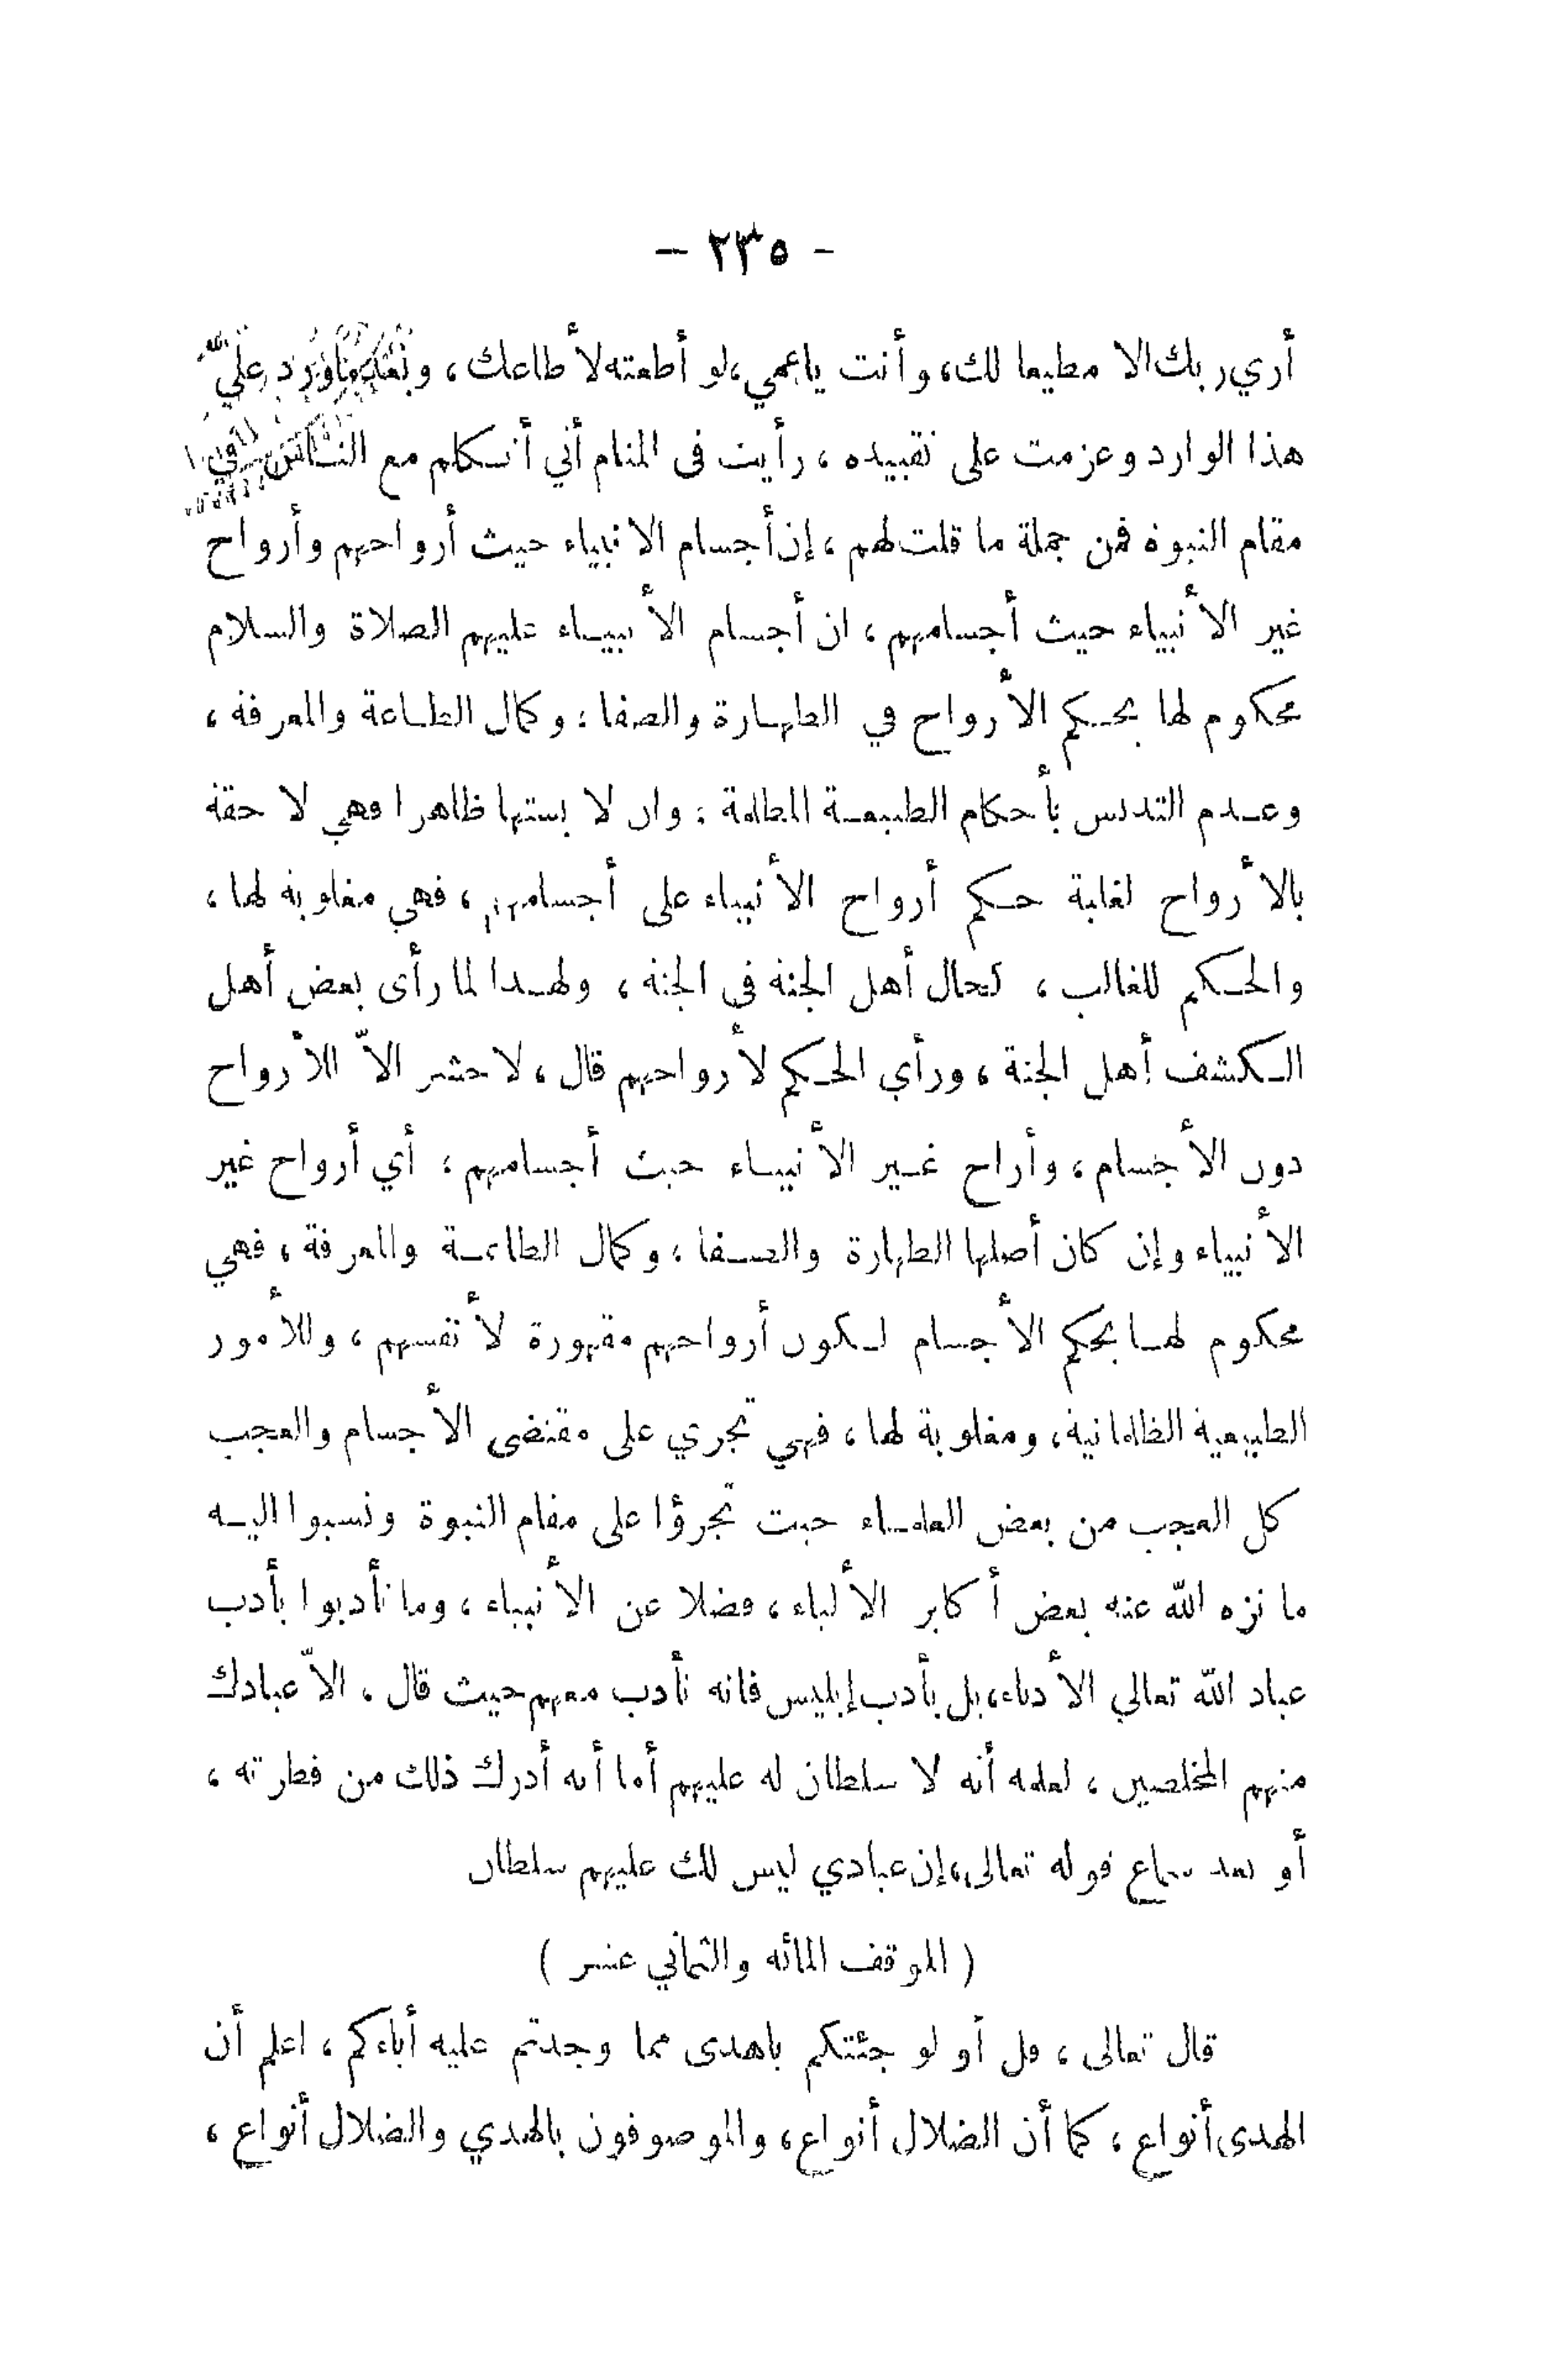 - ٢٣٥ -
أري ربك الا مطيعا لك، وأنت ياعمي، لو أطعته لأطاعك، وبعد ما ورد علي
هذا الوارد وعزمت على تقييده، رأيت فى المنام أني أتكلم مع الناس في
مقام النبوة فمن جملة ما قلت لهم، إن أجسام الانبياء حيث أرواحهم وأرواح
غير الأنبياء حيث أجسامهم، ان أجسام الأنبياء عليهم الصلاة والسلام
محكوم لها بحكم الأرواح في الطهارة والصفا، وكمال الطاعة والمعرفة،
وعدم التدنس بأحكام الطبيعة المظلمة، وان لا بستها ظاهرا فهي لا حقة
بالأرواح لغلبة حكم أرواح الأنبياء على أجسامهم، فهى مغلوبة لها،
والحكم للغالب، كحال أهل الجنة فى الجنة، ولهذا لما رأى بعض أهل
الكشف أهل الجنة، ورأي الحكم لأرواحهم قال، لا حشر الاّ للأرواح
دون الأجسام، وأراح غير الأنبياء حيث أجسامهم، أي أرواح غير
الأنبياء وإن كان أصلها الطهارة والصفا، وكمال الطاعة والمعرفة، فهي
محكوم لها بحكم الأجسام لكون أرواحهم مقهورة لأنفسهم، وللأمور
الطبيعية الظلمانية، ومغلوبة لها، فهي تجري على مقتضى الأجسام والعجب
كل العجب من بعض العلماء حيث تجرؤا على مقام النبوة ونسبوا اليه
ما نزه الله عنه بعض أكابر الألباء، فضلا عن الأنبياء، وما تأدبوا بأدب
عباد الله تعالي الأدباء، بل بأدب إبليس فانه تأدب معهم حيث قال، الاّ عبادك
منهم المخلصين، لعلمه أنه لا سلطان له عليهم أما أنه أدرك ذلك من فطرته،
أو بعد سماع قوله تعالى، إن عبادي ليس لك عليهم سلطان
( الموقف المائه والثماني عشر )
قال تعالى، قل أو لو جئتكم باهدى مما وجدتم عليه أباءكم، اعلم أن
الهدى أنواع، كما أن الضلال أنواع، والموصوفون بالهدي والضلال أنواع،